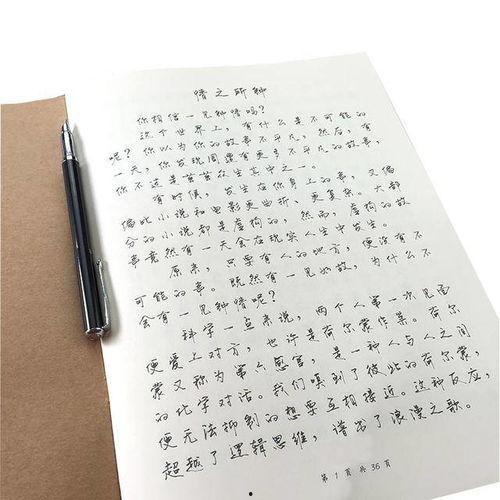 情之所种
你相信一见钟情吗?
这个世界上,有什么是不可能的
呢?你以为你的故事不平凡,然后,有
一天,你发现周围有更多不平凡的故事,
你不过是茫茫众生其中之一。
有时候,发生在你身上的事,又偏
偏比小说和电影更曲折、更复杂。大部
分的小说都是虚构的,然而,虚构的故
事竟然有一天会在现实人生中发生。
原来,只要有人的地方,便没有不
可能的事。既然有一见如故,为什么不
会有一见钟情呢?
科学一点来说,两个人第一次见面
便爱上对方,也许是荷尔蒙作祟。荷尔
蒙又称为第六感官,是一种人与人之间
的化学对话。我们嗅到了彼此的荷尔蒙,
便无法抑制的想要互相接近。这种反应,
超越了逻辑思维,谱写了浪漫之歌。
第1页 共36页